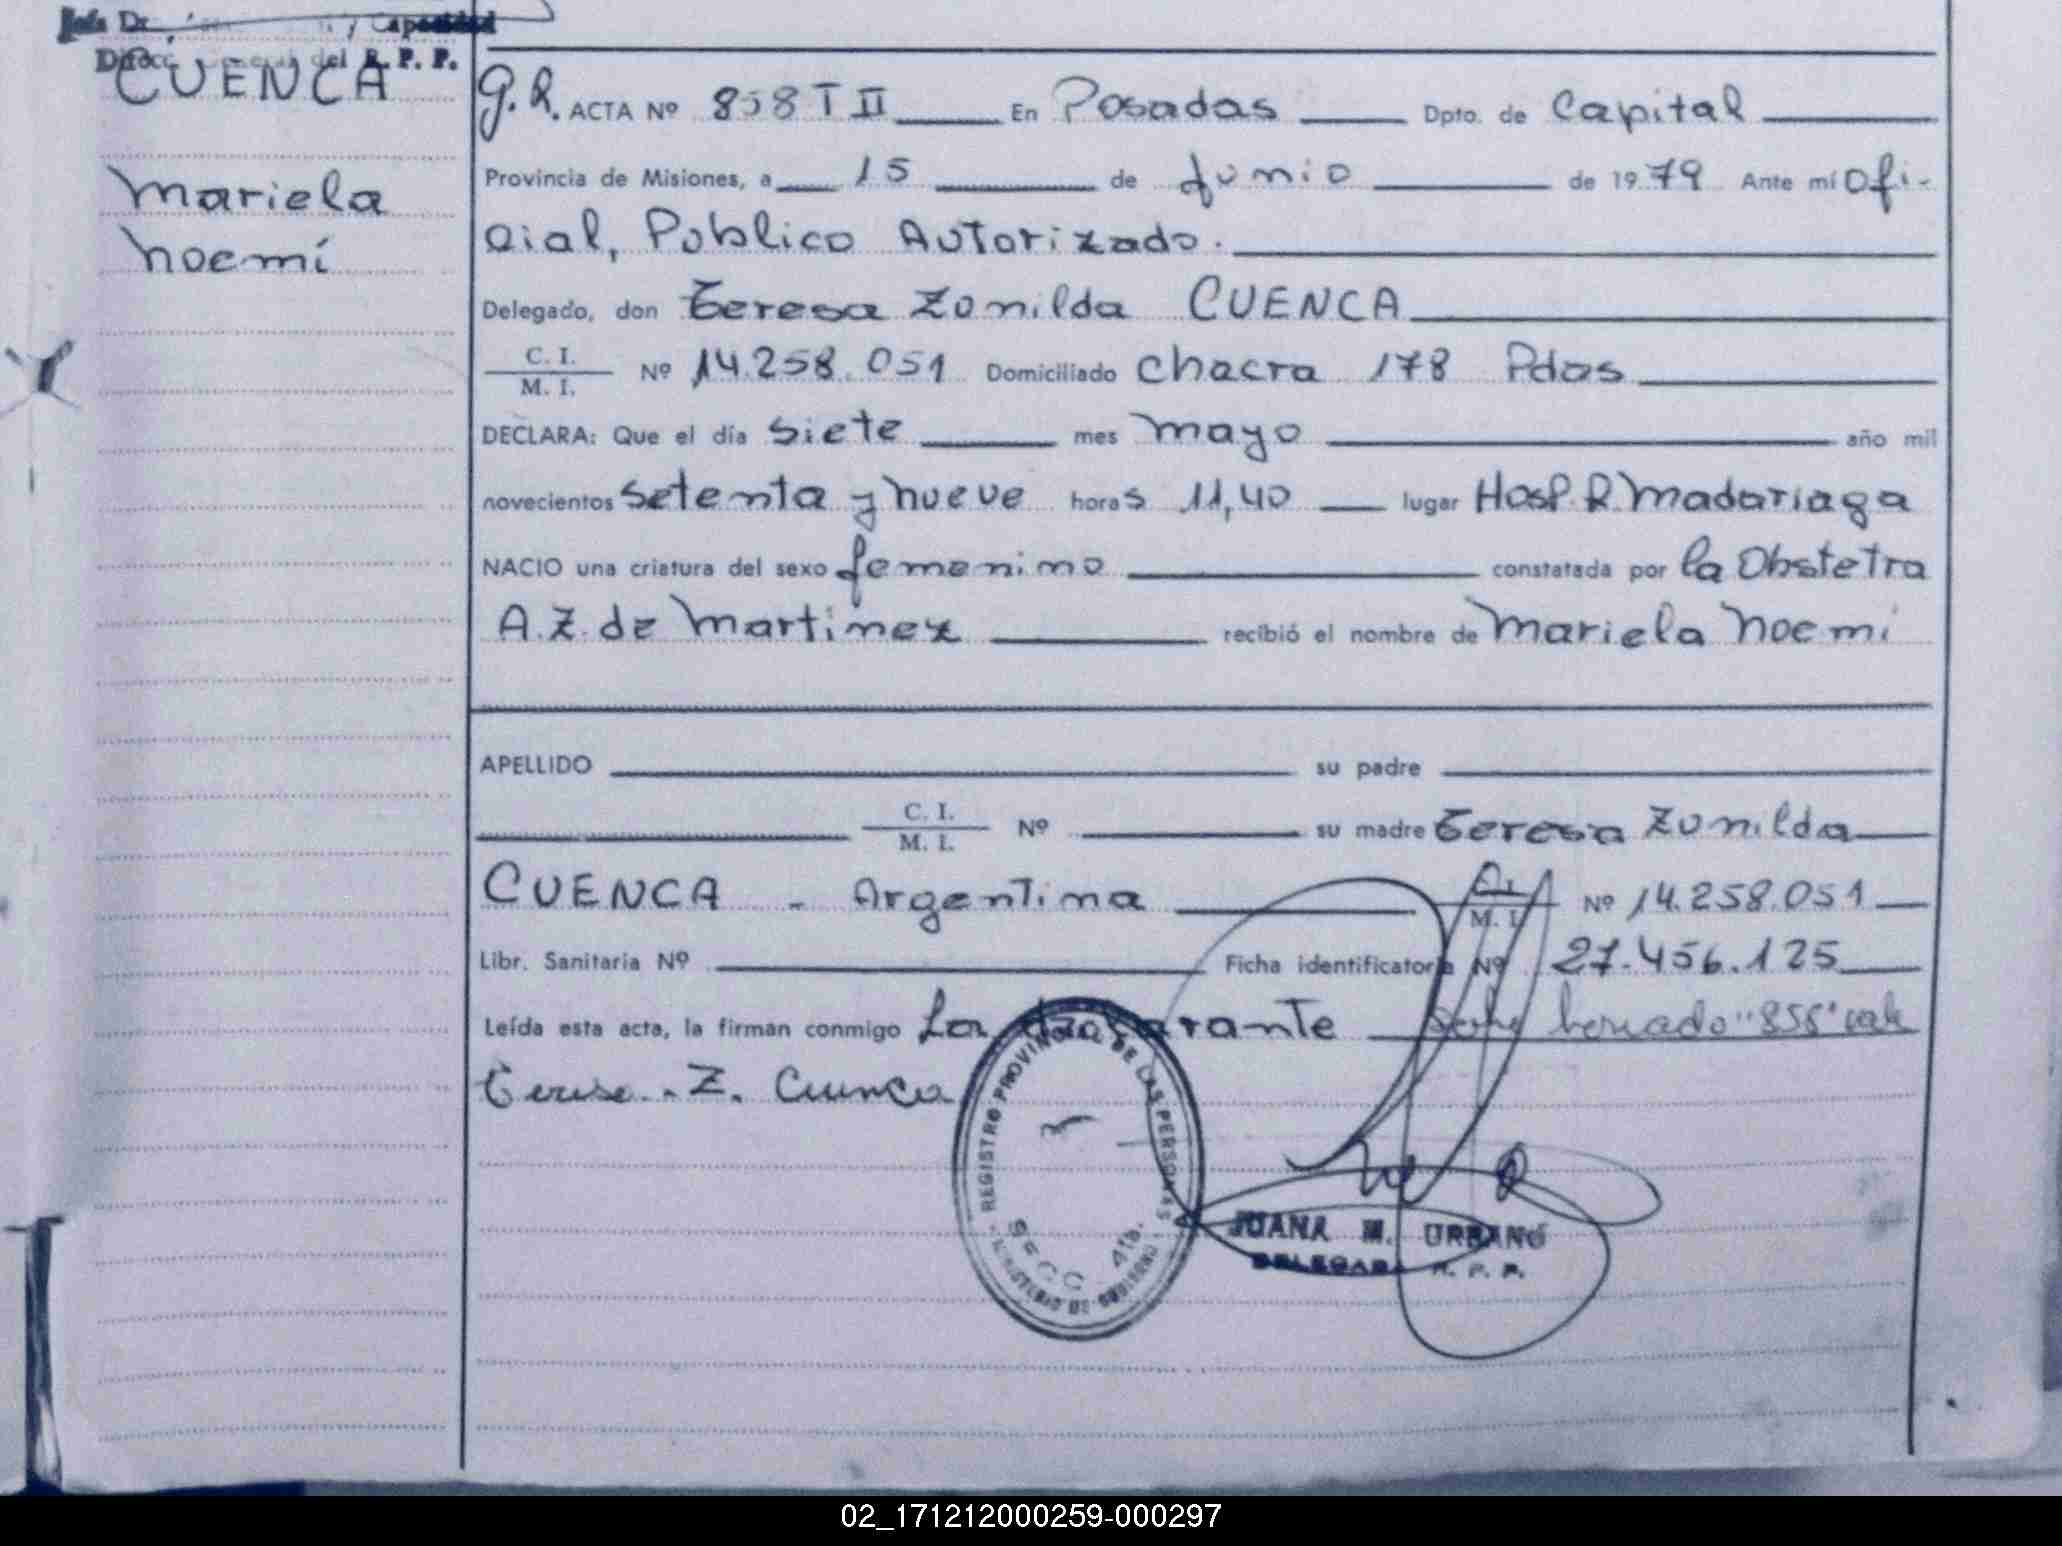 Jefe De y Capacidad
Direcc. General del R. P. P.
CUENCA
Mariela
Noemí
G.R. ACTA Nº 858 T II En Posadas Dpto. de Capital
Provincia de Misiones, a 15 de Junio de 1979 Ante mí Ofi-
cial, Publico Autorizado.
Delegado, don Teresa Zunilda CUENCA
C. I. / M. I. Nº 14.258.051 Domiciliado Chacra 178 Pdas
DECLARA: Que el día siete mes mayo año mil
novecientos setenta y nueve horas 11,40 lugar Hosp. R. Madariaga
NACIO una criatura del sexo femenino constatada por la Obstetra
A. Z. de Martinez recibió el nombre de Mariela Noemi
APELLIDO su padre
C. I. / M. I. Nº su madre Teresa Zunilda
CUENCA - Argentina C. I. / M. I. Nº 14.258.051
Libr. Sanitaria Nº Ficha identificatoria Nº 27.456.125
Leída esta acta, la firman conmigo La declarante Sobre borrado "858" vale
Teresa Z. Cuenca
REGISTRO PROVINCIAL DE LAS PERSONAS
SECC. 4ta.
MINISTERIO DE GOBIERNO
JUANA M. URBANO
DELEGADA R. P. P.
02_171212000259-000297